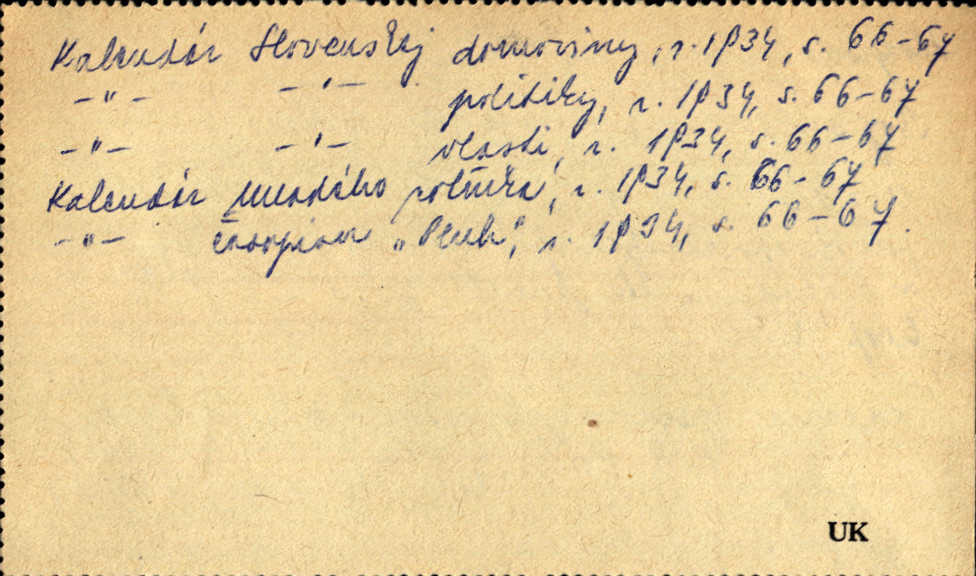 Kalendár Slovenskej domoviny, r. 1934, s. 66-67
-"- -"- politiky, r. 1934, s. 66-67
-"- -"- vlasti, r. 1934, s. 66-67
Kalendár mladého roľníka, r. 1934, s. 66-67
-"- časopisu „Pluh", r. 1934, s. 66-67.
UK